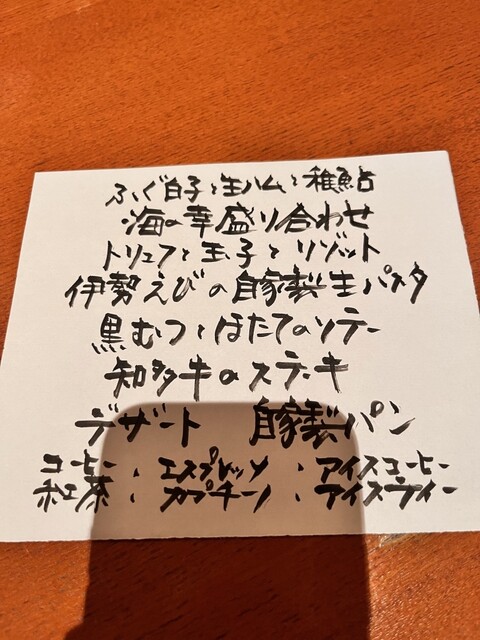 ふぐ白子と生ハムと稚鮎
海の幸盛り合わせ
トリュフと玉子とリゾット
伊勢えびの自家製生パスタ
黒むつとほたてのソテー
知多牛のステーキ
デザート 自家製パン
コーヒー : エスプレッソ : アイスコーヒー
紅茶 : カプチーノ : アイスティー